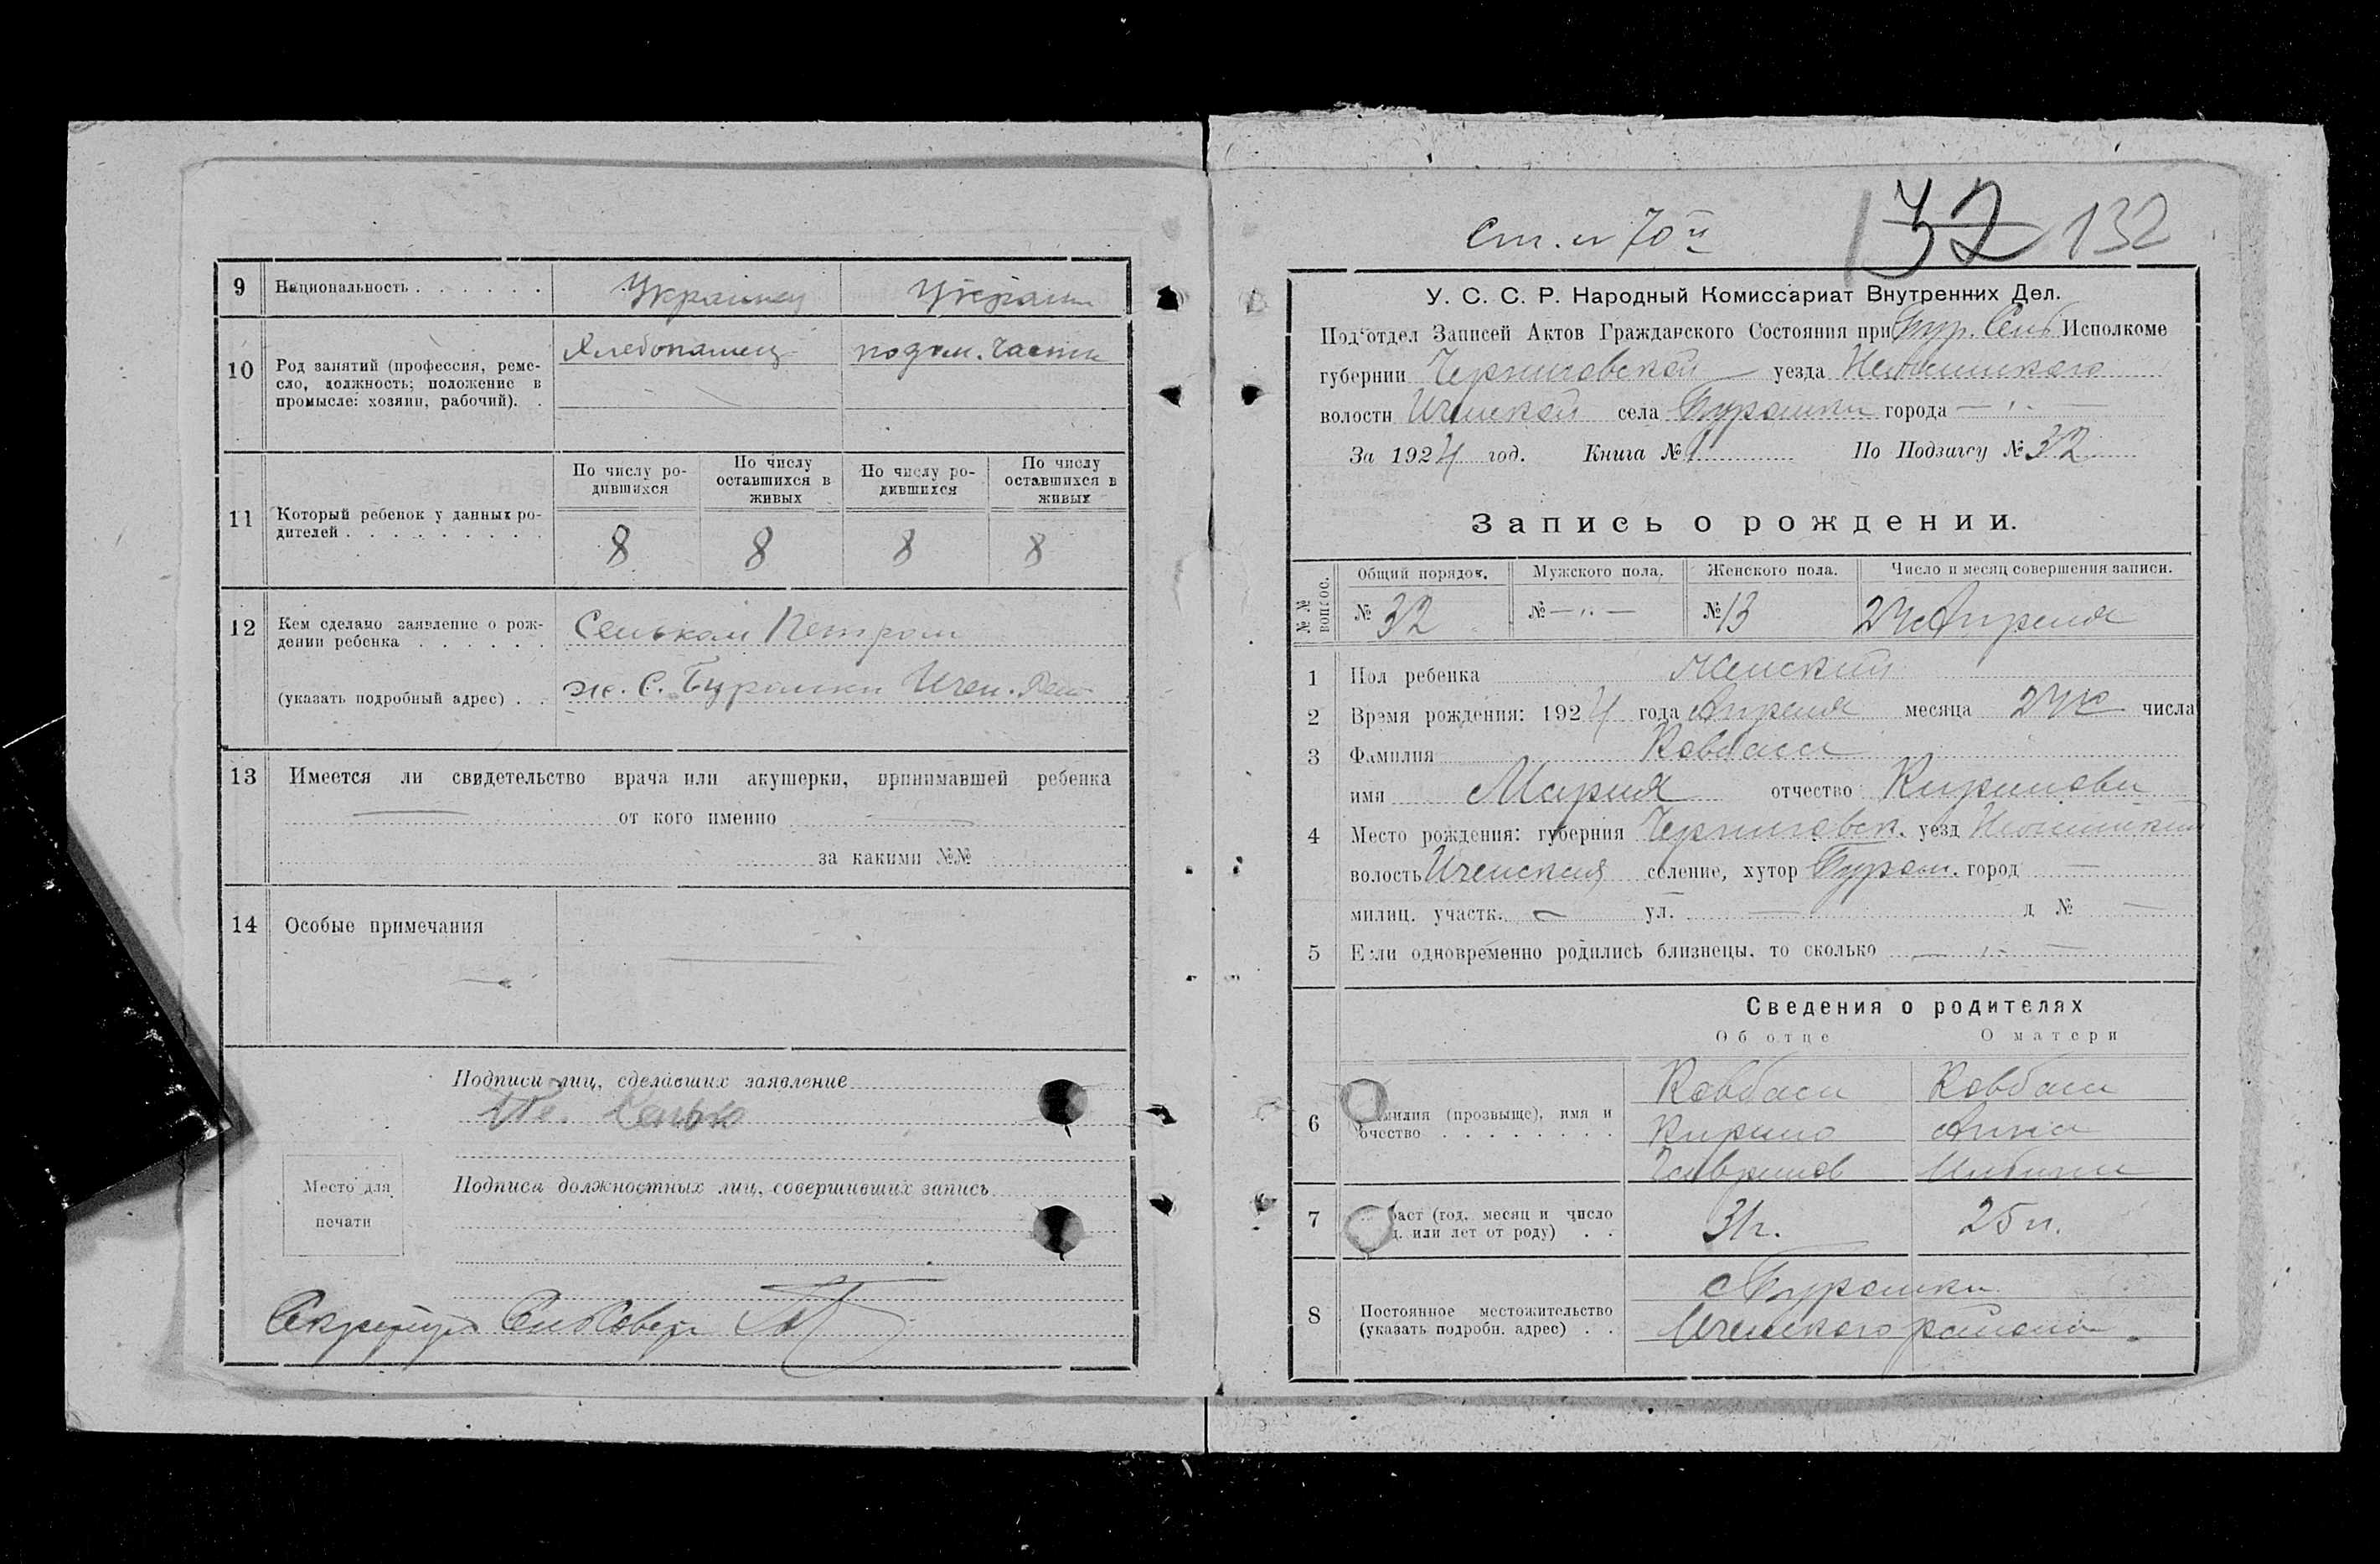 9 Национальность . . . . . . Украинец Украин
10 Род занятий (профессия, реме-
сло, должность; положение в
промысле: хозяин, рабочий). .
Хлебопашец
11 Который ребенок у данных ро-
дителей . . . . . . . . .
По числу ро-
дившихся
По числу
оставшихся в
живых
По числу ро-
дившихся
По числу
оставшихся в
живых
8 8 8 8
12 Кем сделано заявление о рож-
дении ребенка . . . . . .
(указать подробный адрес) . .
Сеньком Петром
ж. с. Буромки Ичен.
13 Имеется ли свидетельство врача или акушерки, принимавшей ребенка
— от кого именно —
за какими №№
14 Особые примечания
Подписи лиц, сделавших заявление
Сенько
Место для
печати
Подписи должностных лиц, совершивших запись
Ст. 70
132 132
У. С. С. Р. Народный Комиссариат Внутренних Дел.
Под'отдел Записей Актов Гражданского Состояния при Бур. Сель Исполкоме
губернии Черниговской уезда Нежинского
волости Иченской села Буромки города —
За 1924 год. Книга № 1 По Подзагсу № 32
Запись о рождении.
№№ вопрос.
Общий порядок. Мужского пола. Женского пола. Число и месяц совершения записи.
№ 32 № — № 13 24 Апреля
1 Пол ребенка Женский
2 Время рождения: 1924 года Апреля месяца 24 числа
3 Фамилия Ковбаса
имя Мария отчество Кирилови
4 Место рождения: губерния Черниговск. уезд Нежинский
волость Иченская селение, хутор Буром. город —
милиц. участк. — ул. — д № —
5 Если одновременно родились близнецы, то сколько —
Сведения о родителях
Об отце О матери
6 милия (прозвыще), имя и
отчество . . . . . . . .
Ковбаса Ковбаса
Кирило Анна
Гаврилов
7 раст (год, месяц и число
д. или лет от роду) . .
31 г. 25 л.
8 Постоянное местожительство
(указать подробн. адрес) . .
с Буромки
Иченского района